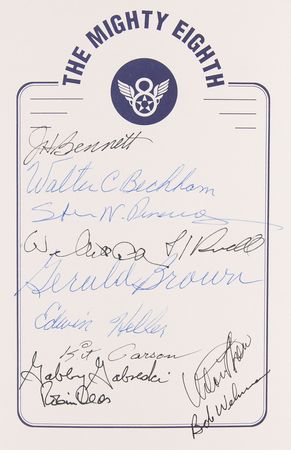 THE MIGHTY EIGHTH
8
J H Bennett
Walter C Beckham
Steve N.
Gerald Brown
Edwin Heller
Kit Carson
Gabby Gabreski
Robin Olds
Bob